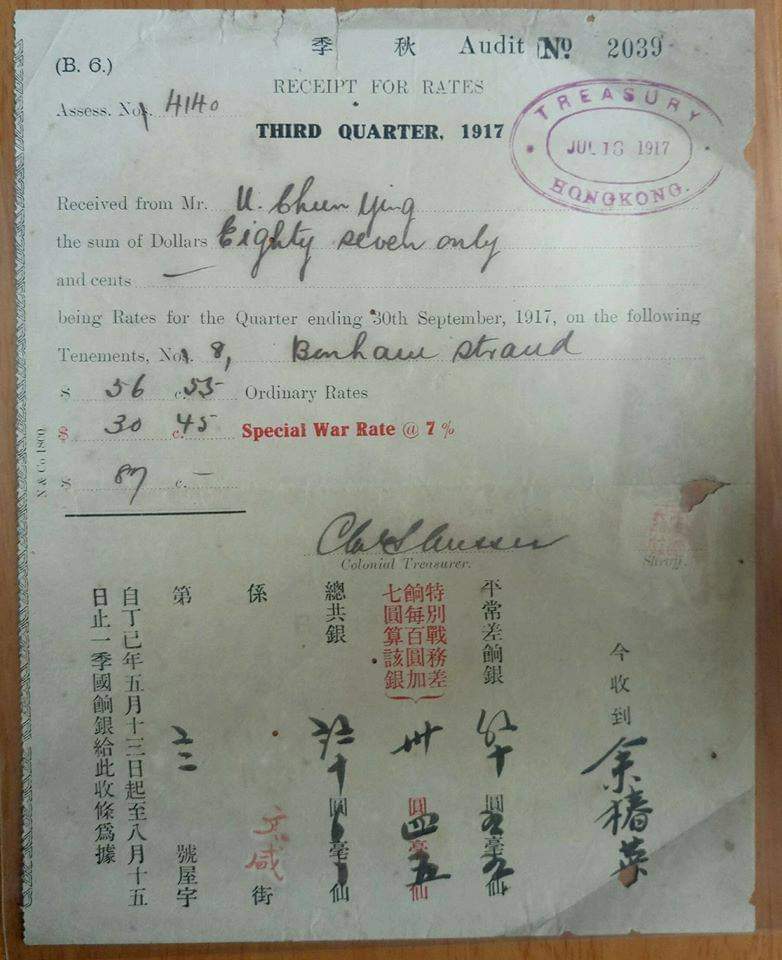 (B. 6.)
季 秋 Audit No 2039
RECEIPT FOR RATES
Assess. No. 4140
THIRD QUARTER, 1917
TREASURY
JUL 18 1917
HONGKONG.
Received from Mr. U. Chun Ying
the sum of Dollars Eighty seven only
and cents —
being Rates for the Quarter ending 30th September, 1917, on the following
Tenements, No. 8, Bonham Strand
$ 56 c. 55 Ordinary Rates
$ 30 c. 45 Special War Rate @ 7 %
$ 87 c. —
Colonial Treasurer.
Shroff.
今收到 余椿英
平常差餉銀 圓 毫 仙
特別戰務差
餉每百圓加
七圓算該銀
卅圓四毫五仙
總共銀 圓 毫 仙
係 文咸 街
第 號屋宇
自丁巳年五月十三日起至八月十五
日止一季國餉銀給此收條爲據